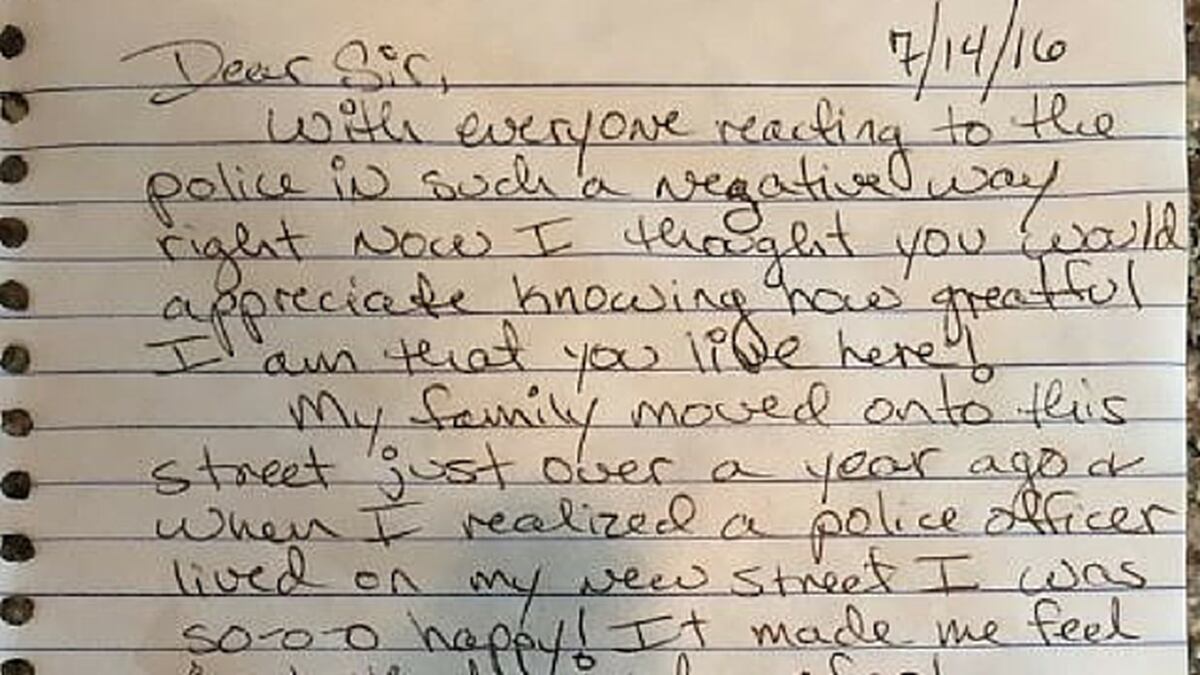 7/14/16
Dear Sir,
With everyone reacting to the
police in such a negative way
right now I thought you would
appreciate knowing how greatful
I am that you live here!
My family moved onto this
street just over a year ago &
when I realized a police officer
lived on my new street I was
so-o-o happy! It made me feel